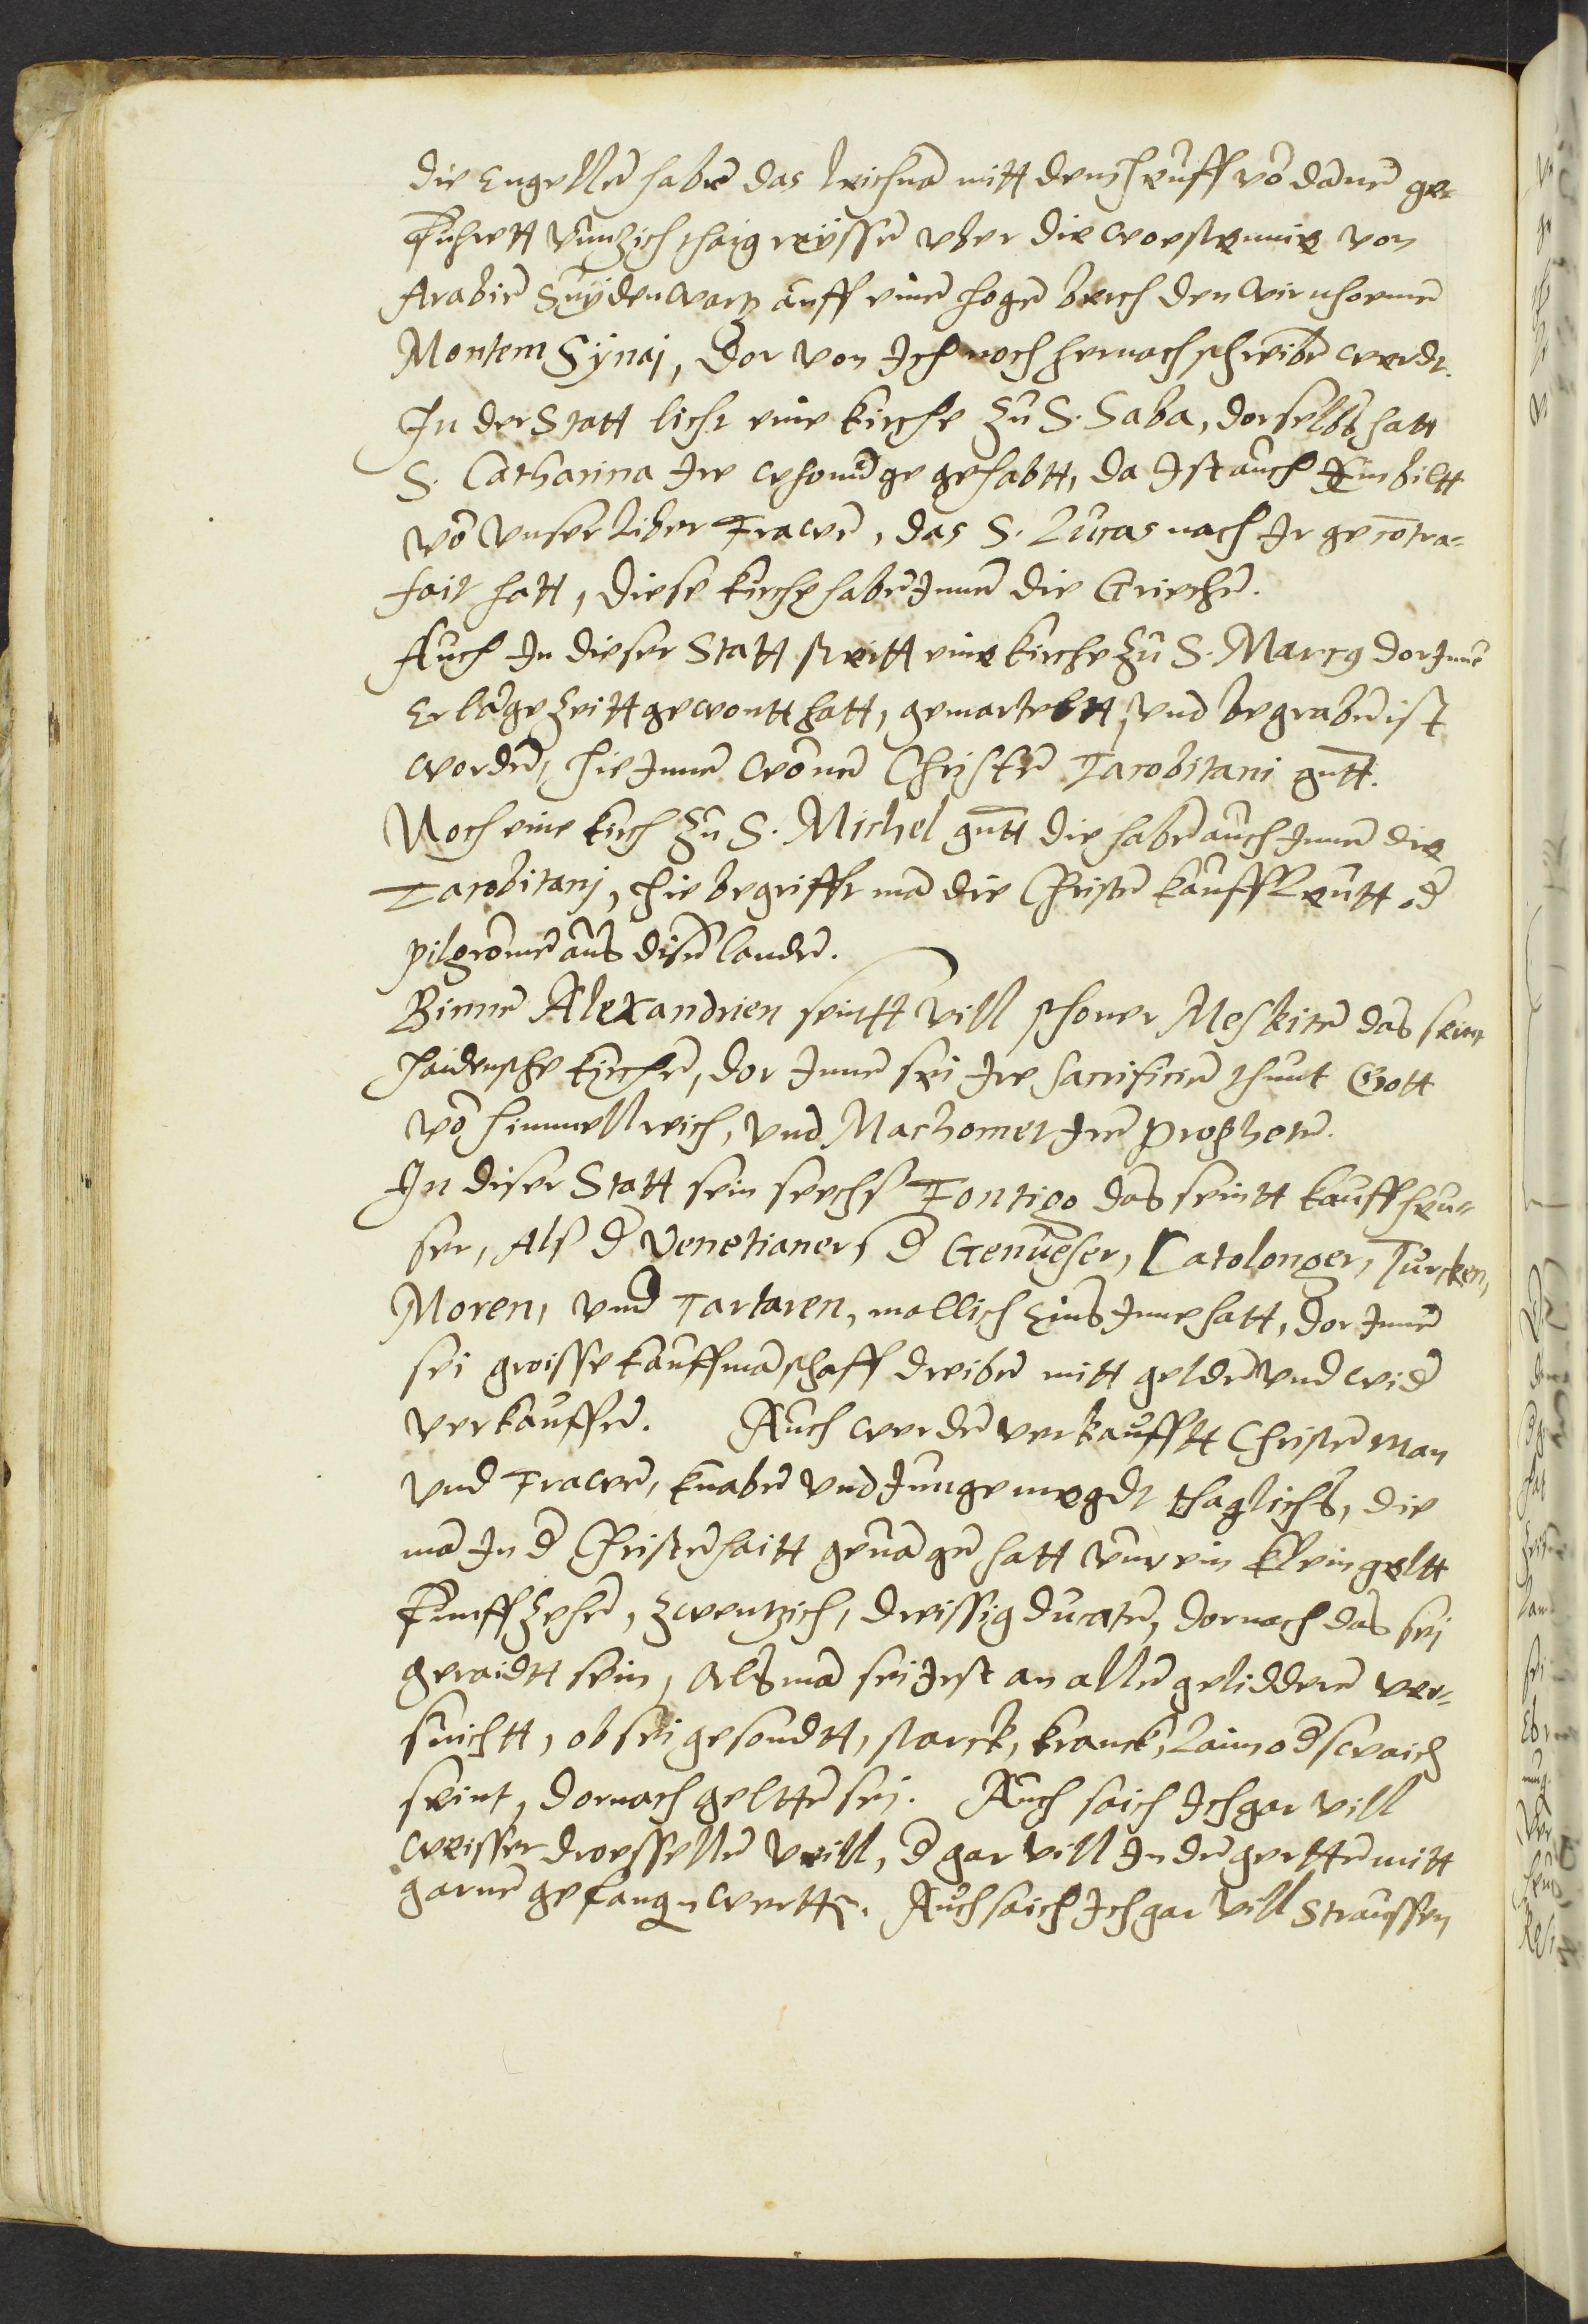 die Engellen̄ haben̄ das leichnā mitt dem heuff vō dānen̄ ge-
fuhrett viunzich thaig reÿssen̄ vber die woestennie von
Arabien̄ Suÿdenwartz auff einen̄ hogen̄ berch den wir nhoemen̄
Montem Sÿnaj, dor von Ich noch hernach schreiben̄ werde.
In der Statt licht eine kirche zu S. Saba, dorselbs hatt
S. Catharina Ire whonūge gehabtt, da Ist auch Ein biltt
vō vnser liber Frawen̄, das S. Lucas nach Ir gecōtra-
fait hatt, diese kirche haben̄ Innen̄ die Griechen̄.
Auch In dieser Statt steitt eine kirche zu S. Marcg dor Innē
Er lange zeitt gewontt hatt, gemarteltt, vnd begraben̄ ist
worden̄, hie Innen̄ wōnen̄ Christen̄ Jacobitani gnt̄t.
Noch eine kirch zu S. Michel gnt̄t die haben̄ auch Innen̄ die
Jacobitanj, hie begrifft mā die Christen̄ kauffleutt od̄
pilgromen̄ aus disen̄ landen̄.
Binnen̄ Alexandrien seintt vill schoner Meskiten̄ das seint
haidensche kirchen̄, dor Innen̄ sei Ire sacrificien̄ thunt Gott
vō himmellreich, vnd Machomet Iren̄ Propheten̄.
In diser Statt sein sechs Fontigo das seintt kauffheu-
ser, Als d̄ Venetianer, d̄ Genueser, Catolonger, Turcken,
Moren, vnd Tartaren, mallich Eins Inne hatt, dor Innen̄
sei groisse kauffmāschaff dreiben̄ mitt gelden̄ vnd wid̄
verkauffen̄. Auch werden̄ verkaufftt Christen̄ man
vnd Frawen̄, knaben̄ vnd Junge megde thaglichs, die
mā In d̄ Christen̄haitt genāgen̄ hatt vmb ein klein geltt
Funffzehen̄, zwentzich, dreissig ducaten̄, dornach das sei
geraidtt sein, Als mā sei Irst an allen̄ gelidderen̄ ver-
suichtt, ob sei gesondtt, starck, kranck, Laim od̄ swaich
seint, dornach geltten̄ sei. Auch saich Ich gar vill
weisser droessellen̄ veill, d̄ gar vill In den̄ gertten̄ mitt
garnen̄ gefangen wertten. Auch saich Ich gar vill Straussen